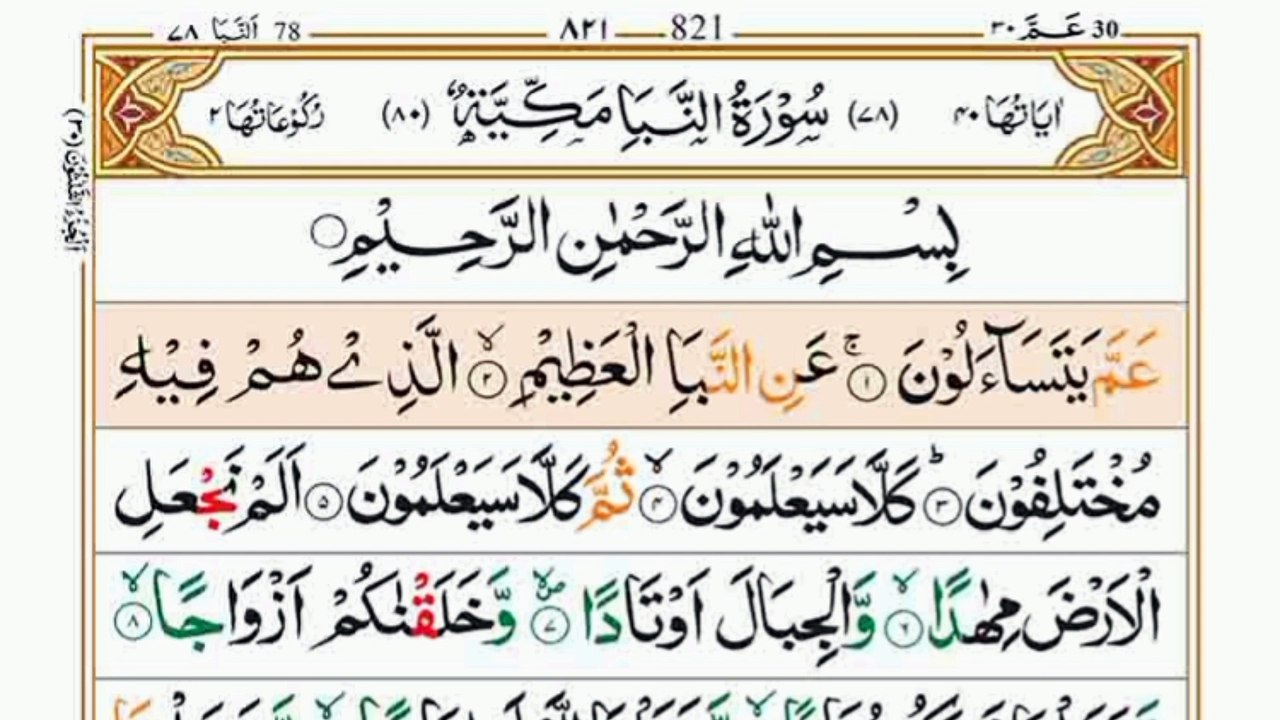 30 عَمَّ ۳۰ 821 ۸۲۱ 78 اَلنَّبَا ۷۸
اٰيَاتُهَا ۴۰ (۷۸) سُوْرَةُ النَّبَاِ مَكِّيَّةٌ (۸۰) رُكُوْعَاتُهَا ۲
بِسْمِ اللّٰهِ الرَّحْمٰنِ الرَّحِيْمِ ۝
عَمَّ يَتَسَآءَلُوْنَ ۚ‏ ۱ عَنِ النَّبَاِ الْعَظِيْمِ ۙ‏ ۲ الَّذِىْ هُمْ فِيْهِ
مُخْتَلِفُوْنَ ؕ‏ ۳ كَلَّا سَيَعْلَمُوْنَ ۙ‏ ۴ ثُمَّ كَلَّا سَيَعْلَمُوْنَ ۵ اَلَمْ نَجْعَلِ
الْاَرْضَ مِهٰدًا ۙ‏ ۶ وَّالْجِبَالَ اَوْتَادًا ۙ‏ ۷ وَّخَلَقْنٰكُمْ اَزْوَاجًا ۙ‏ ۸